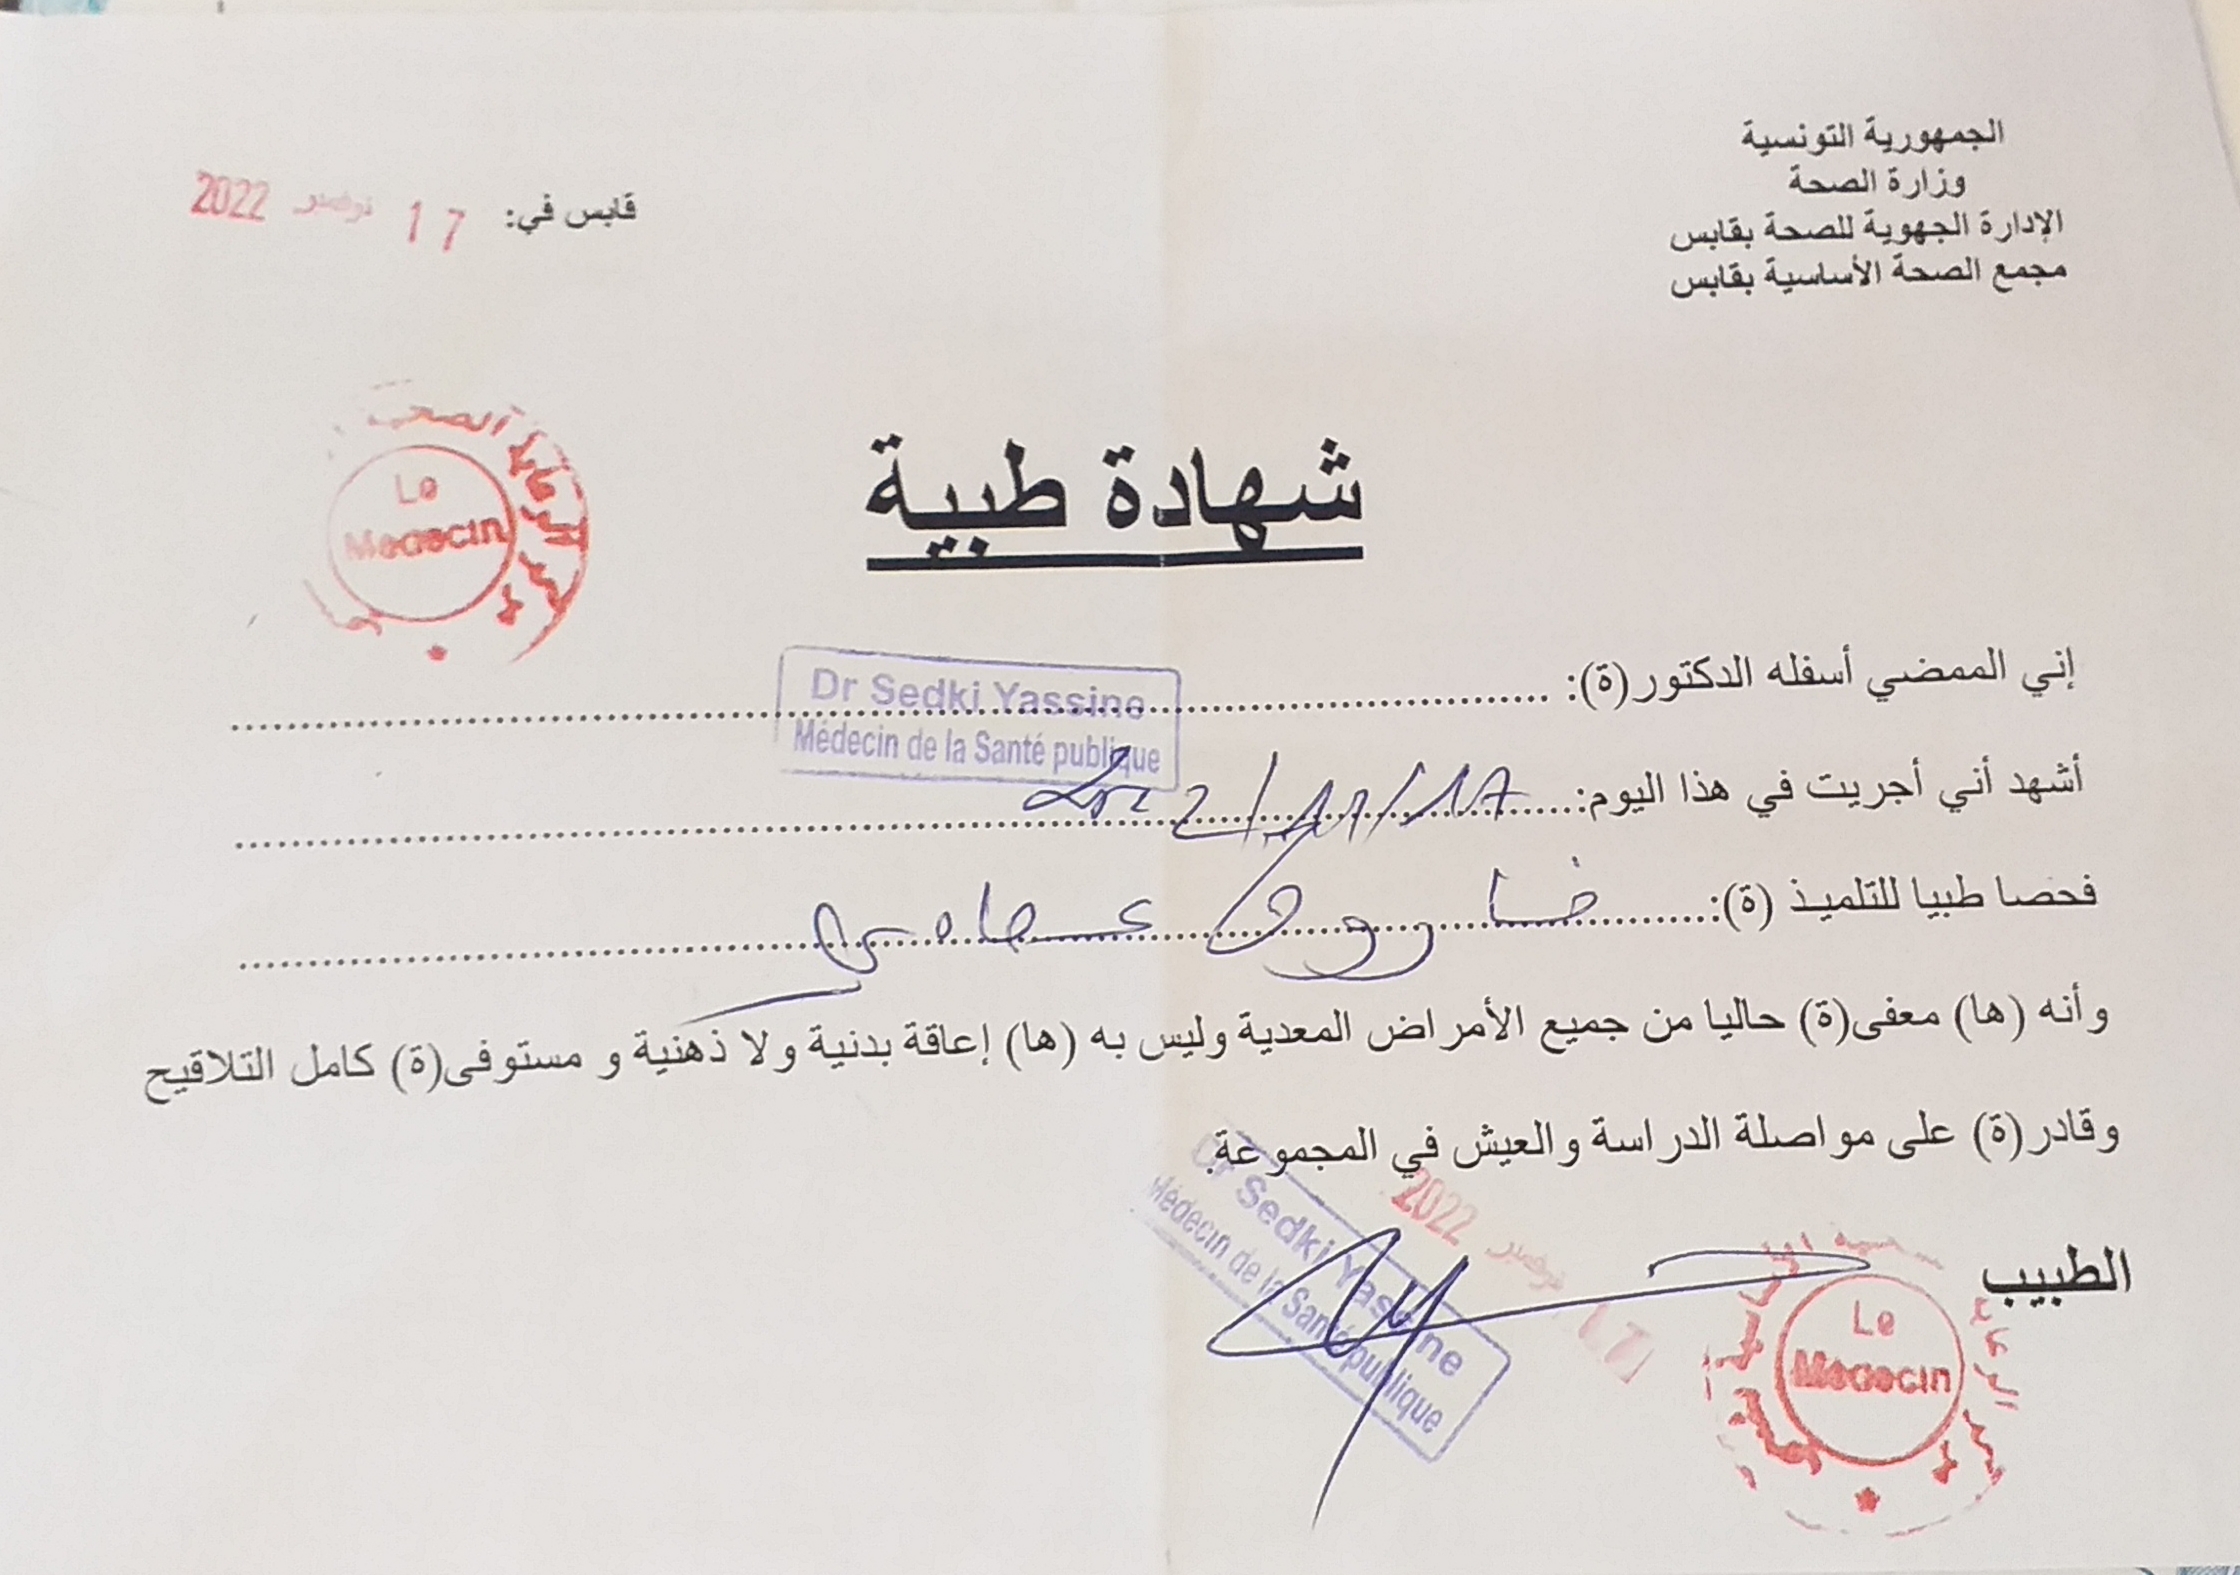 الجمهورية التونسية
وزارة الصحة
الإدارة الجهوية للصحة بقابس
مجمع الصحة الأساسية بقابس
قابس في: 17 نوفمبر 2022
Le
Medecin
شهادة طبية
إني الممضي أسفله الدكتور(ة):
Dr Sedki Yassine
Médecin de la Santé publique
أشهد أني أجريت في هذا اليوم: 2022/11/17
فحصا طبيا للتلميذ (ة): فاروق
وأنه (ها) معفى(ة) حاليا من جميع الأمراض المعدية وليس به (ها) إعاقة بدنية ولا ذهنية و مستوفى(ة) كامل التلاقيح
وقادر(ة) على مواصلة الدراسة والعيش في المجموعة.
الطبيب
17 نوفمبر 2022
Dr Sedki Yassine
Médecin de la Santé publique
Le
Medecin